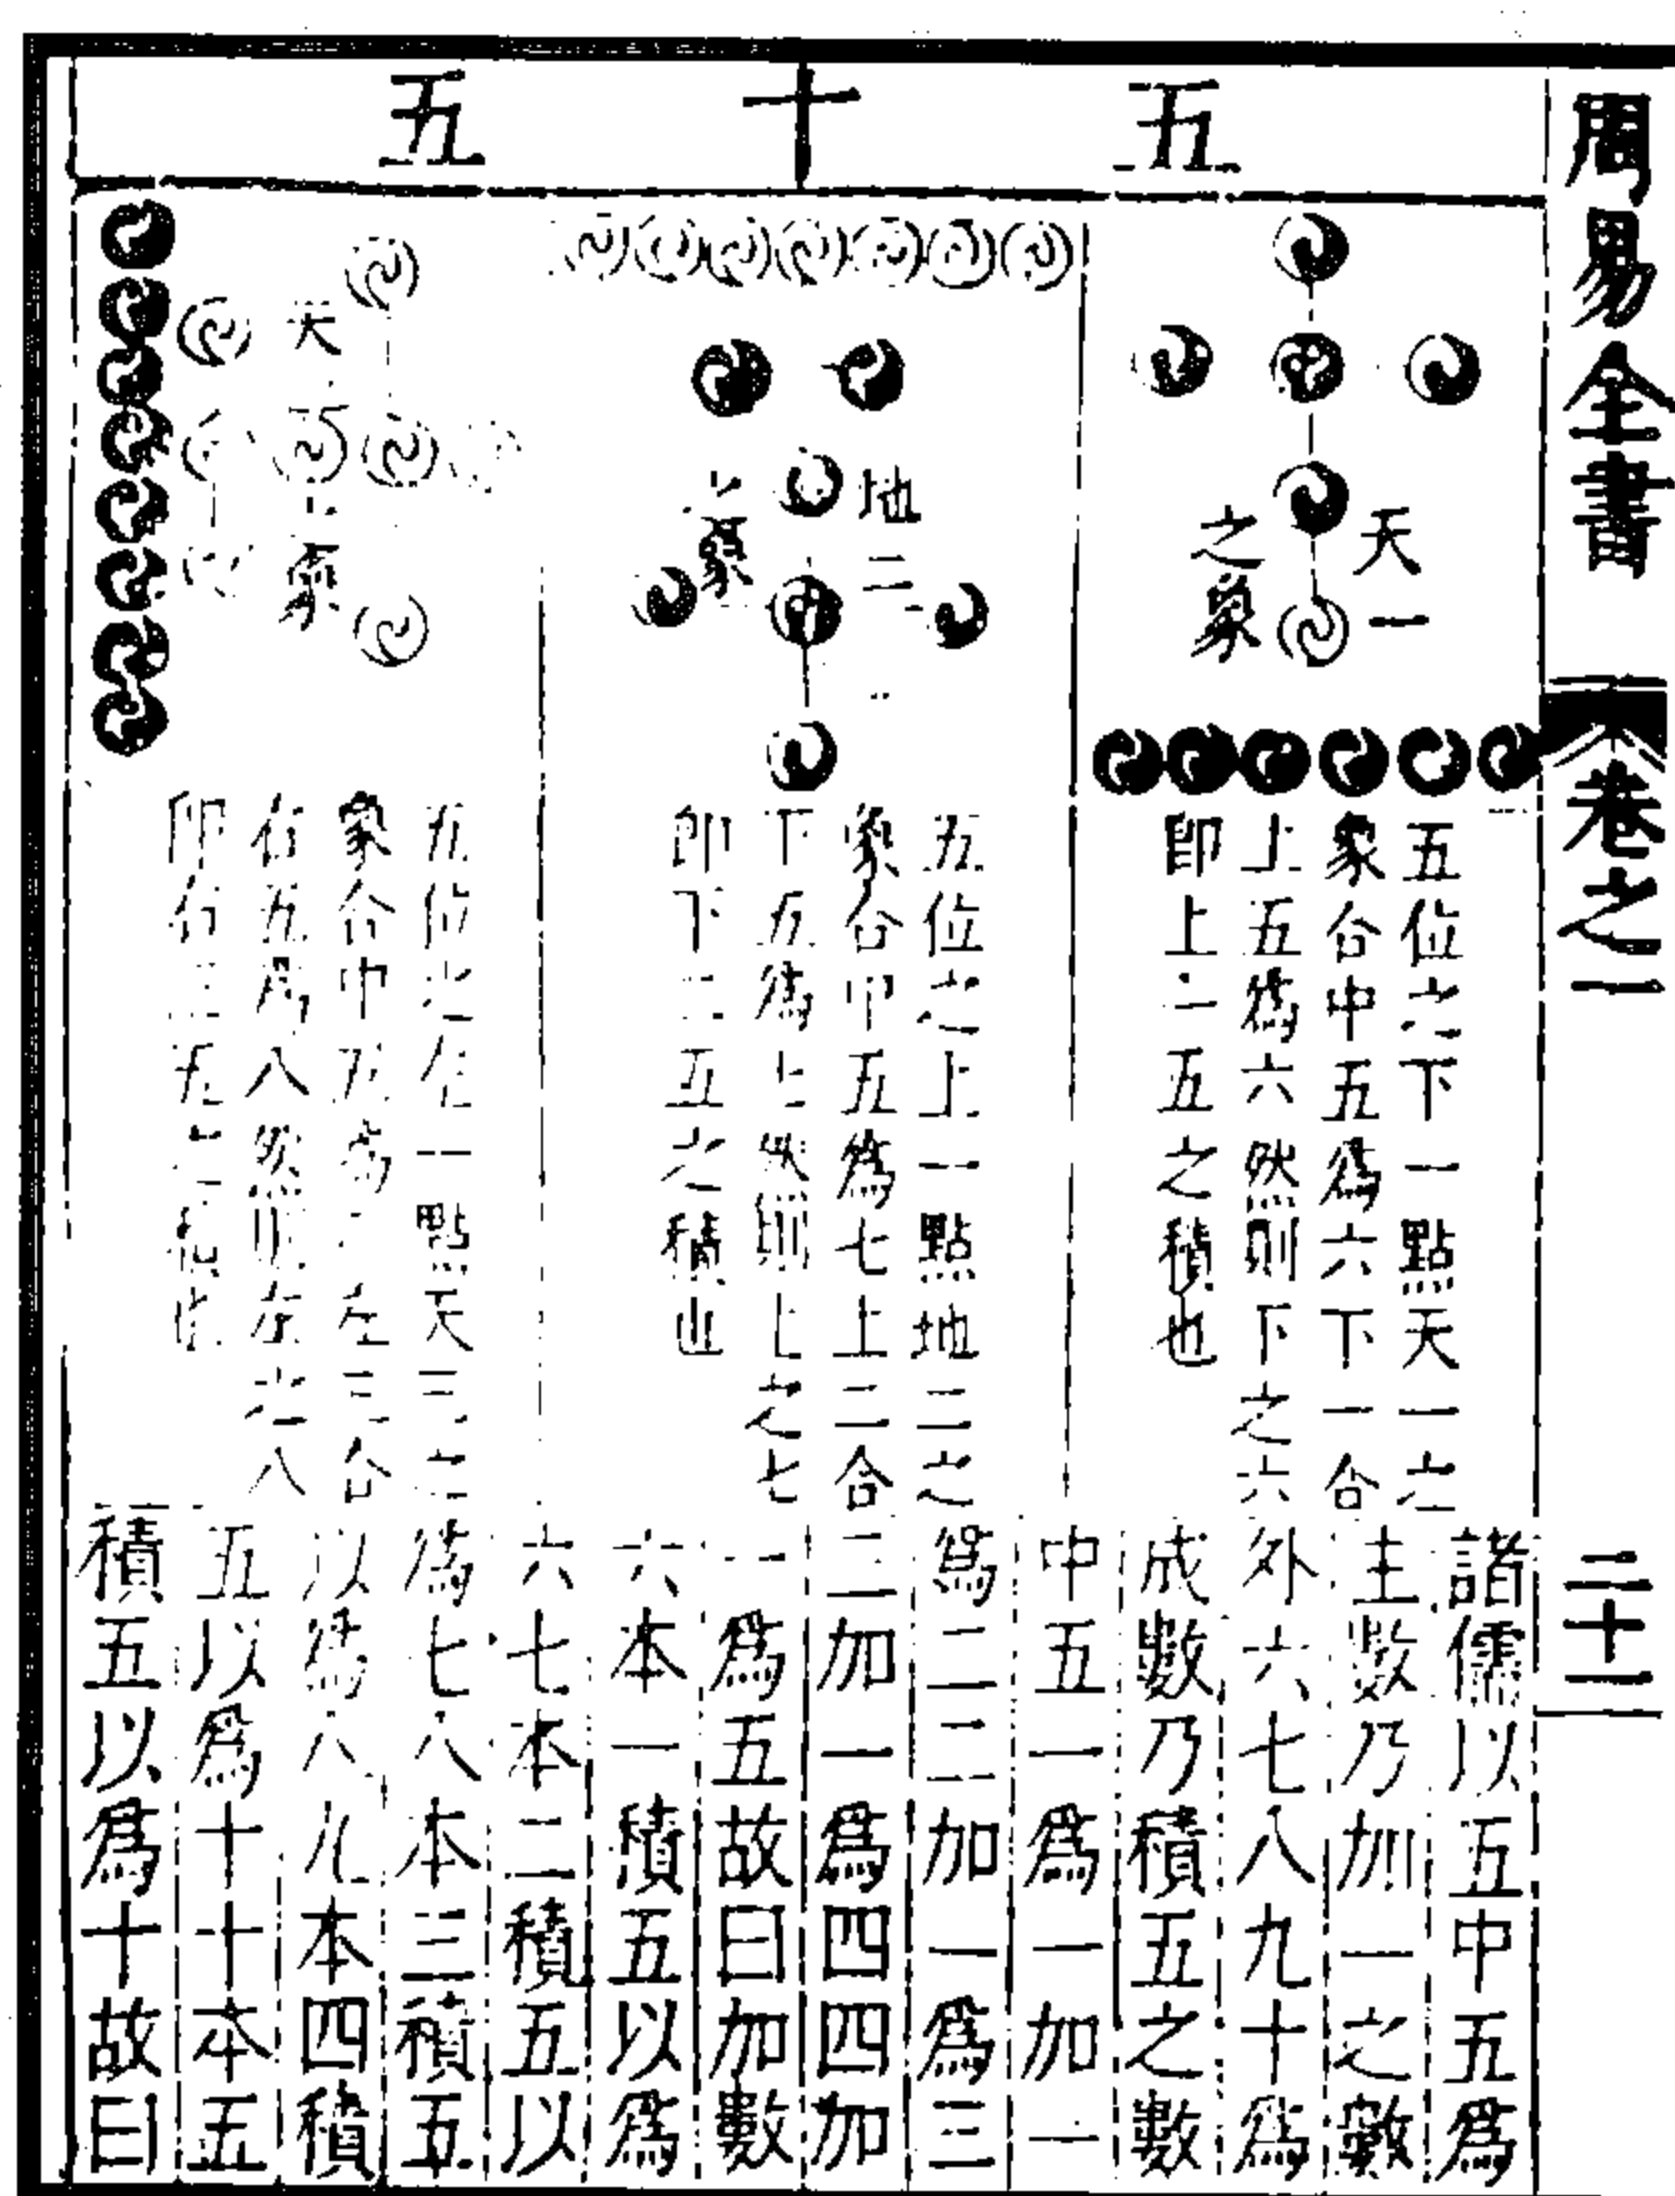 周易全書 卷之一 二十一
五十五
天一
之象
五位之下一點天一之
象合中五為六下一合
上五為六然則下之六
即上一五之積也
地二
之象
五位之上一點地二之
象合中五為七上二合
下五為七然則上之七
即下二五之積也
天三
之象
五位之左一點天三之
象合中五為八左三合
右五為八然則左之八
即右三五之積也
諸儒以五中五為
主數乃加一之數
外六七八九十為
成數乃積五之數
中五一為一一加一
為二二加一為三
三加一為四四加
一為五故曰加數
六本一積五以為
六七本二積五以
為七八本三積五
以為八九本四積
五以為十十本五
積五以為十故曰